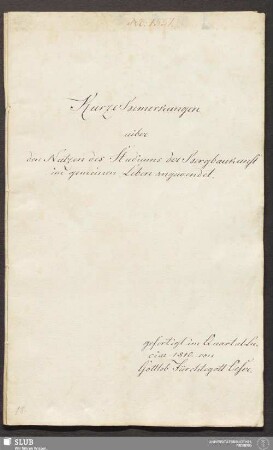 Kurze Bemerkungen
ueber
den Nutzen des Studiums der Bergbaukunst
im gemeinen Leben angewendet.
gefertigt im Quartal Lu
ciae 1810. von
Gottlob Fürchtegott
SLUB